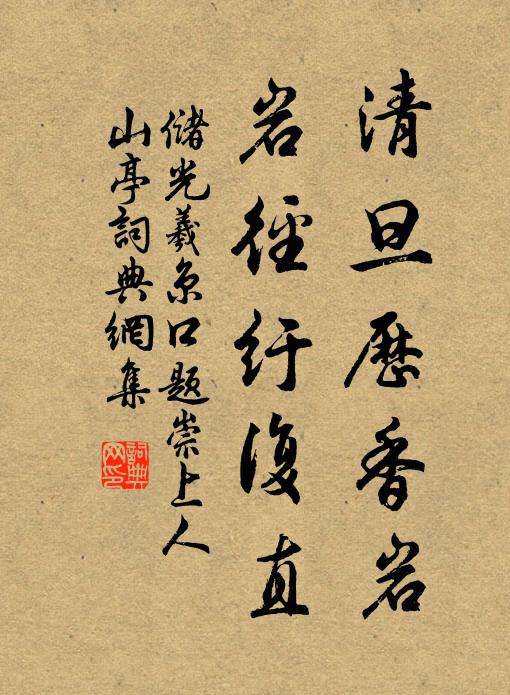 清旦歷香岩
岩徑紆復直
儲光羲京口題崇上人
山亭詞典網集
詞典网印